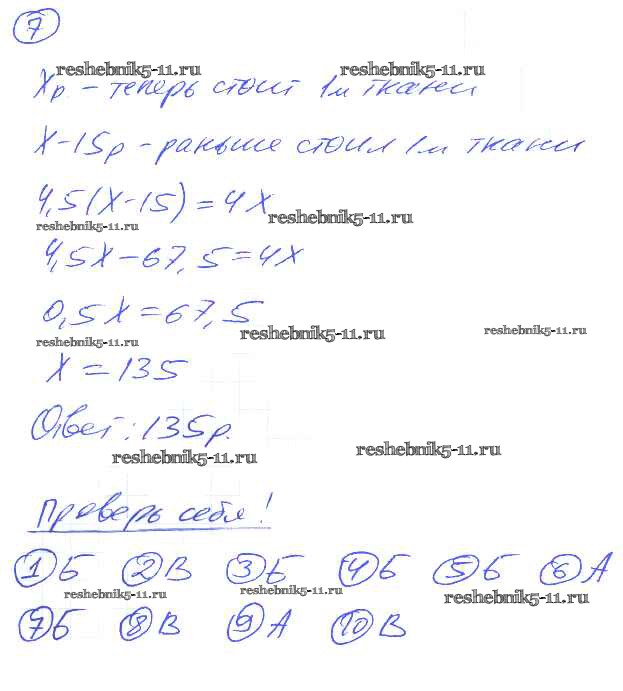 7
reshebnik5-11.ru reshebnik5-11.ru
Xр – теперь стоит 1м ткани
X–15р – раньше стоил 1м ткани
4,5(X–15)=4X
reshebnik5-11.ru reshebnik5-11.ru
4,5X–67,5=4X
0,5X=67,5
reshebnik5-11.ru reshebnik5-11.ru reshebnik5-11.ru
X=135
Ответ: 135р.
reshebnik5-11.ru reshebnik5-11.ru
Проверь себя!
1 Б 2 В 3 Б 4 Б 5 Б 6 А
reshebnik5-11.ru reshebnik5-11.ru reshebnik5-11.ru
7 Б 8 В 9 А 10 В